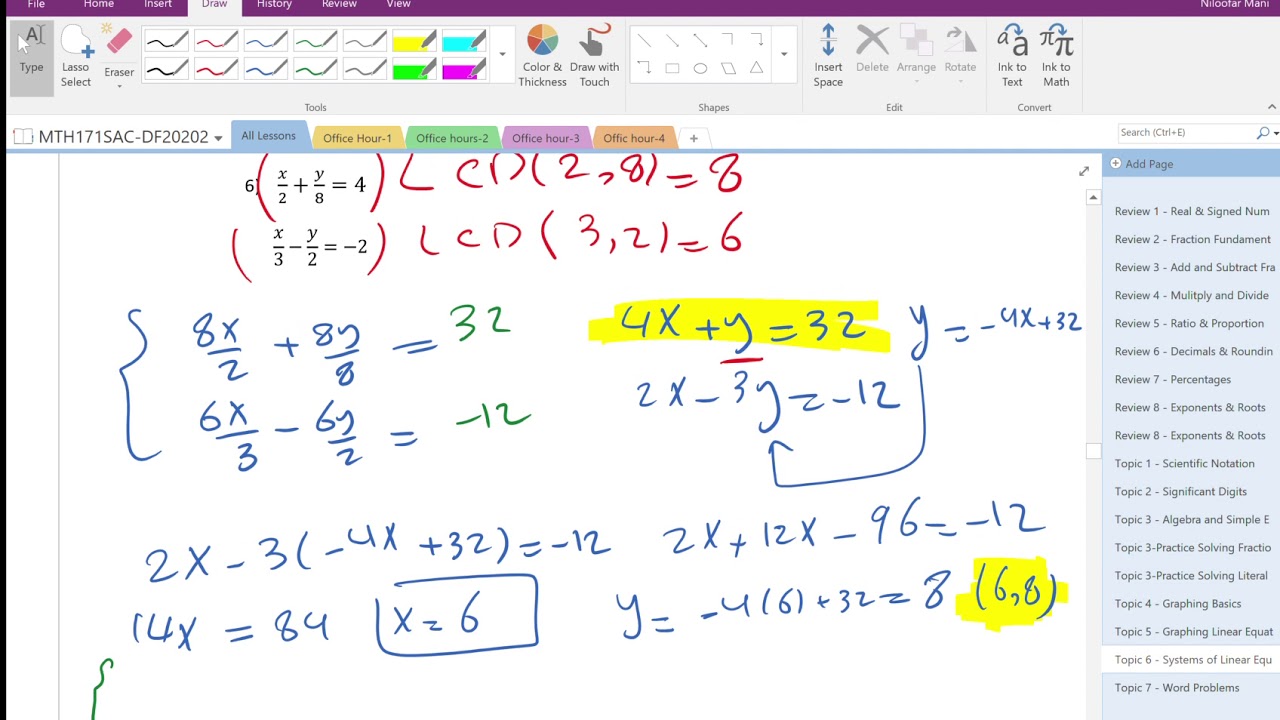 File Home Insert Draw History Review View Niloofar Mani
Type
Lasso Select
Eraser
Color & Thickness
Draw with Touch
Insert Space
Delete
Arrange
Rotate
Ink to Text
Ink to Math
Tools
Shapes
Edit
Convert
MTH171SAC-DF20202
All Lessons
Office Hour-1
Office hours-2
Office hour-3
Offic hour-4
+
Search (Ctrl+E)
Add Page
6) ( x/2 + y/8 = 4 ) LCD(2,8) = 8
( x/3 − y/2 = −2 ) LCD(3,2) = 6
{ 8x/2 + 8y/8 = 32
6x/3 − 6y/2 = −12
4x + y = 32 y = −4x+32
2x − 3y = −12
2x − 3(−4x + 32) = −12 2x + 12x − 96 = −12
14x = 84 x = 6 y = −4(6) + 32 = 8 (6,8)
{
Review 1 - Real & Signed Num
Review 2 - Fraction Fundament
Review 3 - Add and Subtract Fra
Review 4 - Mulitply and Divide
Review 5 - Ratio & Proportion
Review 6 - Decimals & Roundin
Review 7 - Percentages
Review 8 - Exponents & Roots
Review 8 - Exponents & Roots
Topic 1 - Scientific Notation
Topic 2 - Significant Digits
Topic 3 - Algebra and Simple E
Topic 3-Practice Solving Fractio
Topic 3-Practice Solving Literal
Topic 4 - Graphing Basics
Topic 5 - Graphing Linear Equat
Topic 6 - Systems of Linear Equ
Topic 7 - Word Problems